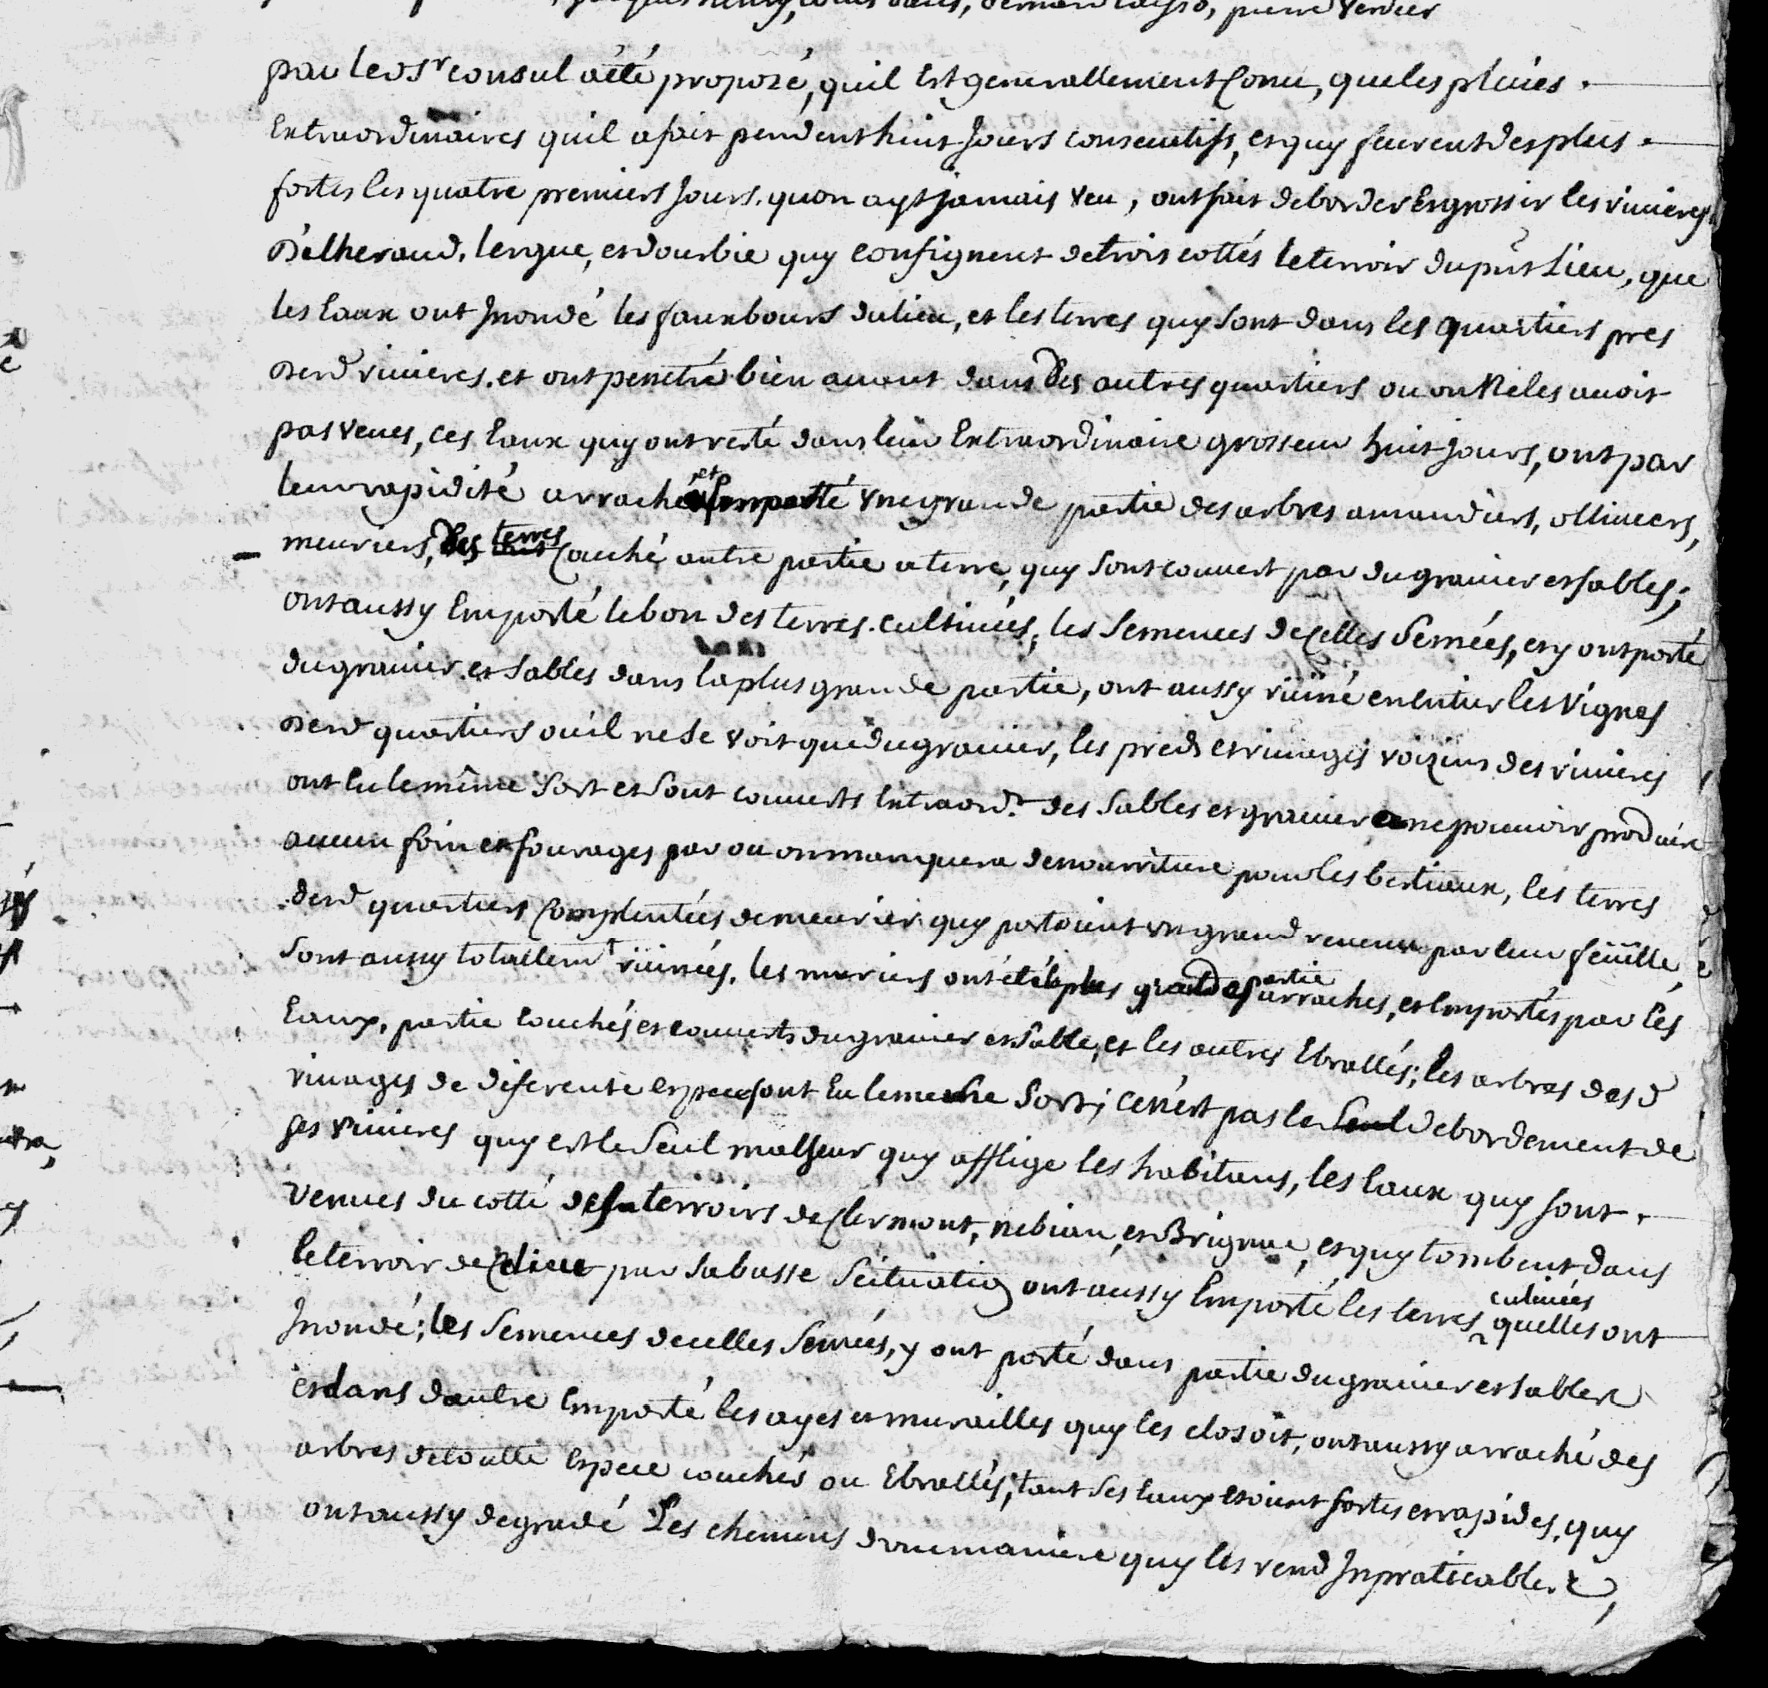 pierre verdier
par led Sr consul a été propozé, quil Est generallement Conu, que les pluies
Extraordinaires quil a fait pendent huit Jours consecutifs, et quy feurent des plus
fortes les quatre premiers Jours. quon ayt jamais veu, ont fait deborder Et grossir les rivieres
D'elheraud, lergue, et dourbie quy confignent de trois cottés le terroir du pnt Lieu, que
les Eaux ont Jnondé les fauxbours du lieu, et les terres quy sont dans les quartiers pres
desd rivieres. et ont penetré bien avant dans des autres quartiers ou on Ne les avoit
pas veues, ces Eaux quy ont resté dans leur Extraordinaire grosseur huit jours, ont par
leur rapidité arraché et Emporté vne grande partie des arbres amandiers, olliviers,
meuriers, des terres Couché autre partie a terre, quy sont couvert par du gravier et sables;
ont aussy Emporté le bon des terres cultivées, les semences de Celles Semées, et y ont porté
du gravier et sables dans la plus grande partie, ont aussy ruiné en Entier les vignes
desd quartiers ou il ne se voit que du gravier, les preds et rivages voizins des rivieres
ont Eu le même sort et sont couverts Extraordt des sables et gravier a ne pouvoir produire
aucun foin et fourages par ou on manquera de nourriture pour les bestiaux, les terres
desd quartiers Complentées de meurier quy portoient vn grand revenu par leur feüille,
sont aussy totallemt ruinées. les muriers ont été la plus grande partie arrachés, et Emportés par les
Eaux, partie couchés et couverts du gravier et sable, et les autres Ebrallés; les arbres desd
rivages de diferente espece ont Eu le meme sort; ce n'est pas le seul debordement de
ses rivieres quy est le seul malheur quy afflige les habitans, les Eaux quy sont
venues du cotté des terroirs de Clermont, nebian, et Brignac, et quy tombent dans
le terroir de Ce lieu par sa basse scituation ont aussy Emporté les terres cultivées quelles ont
Jnondé; les semences de celles semées, y ont porté dans partie du gravier et sables
et dans dautre Emporté les ayes et murailles quy les closoit, ont aussy arraché des
arbres de toutte Espece couchés ou Ebrallés, tant ses Eaux etoient fortes et rapides, quy
ont aussy degradé Les chemins d'vne maniere quy les rend Jnpraticables,